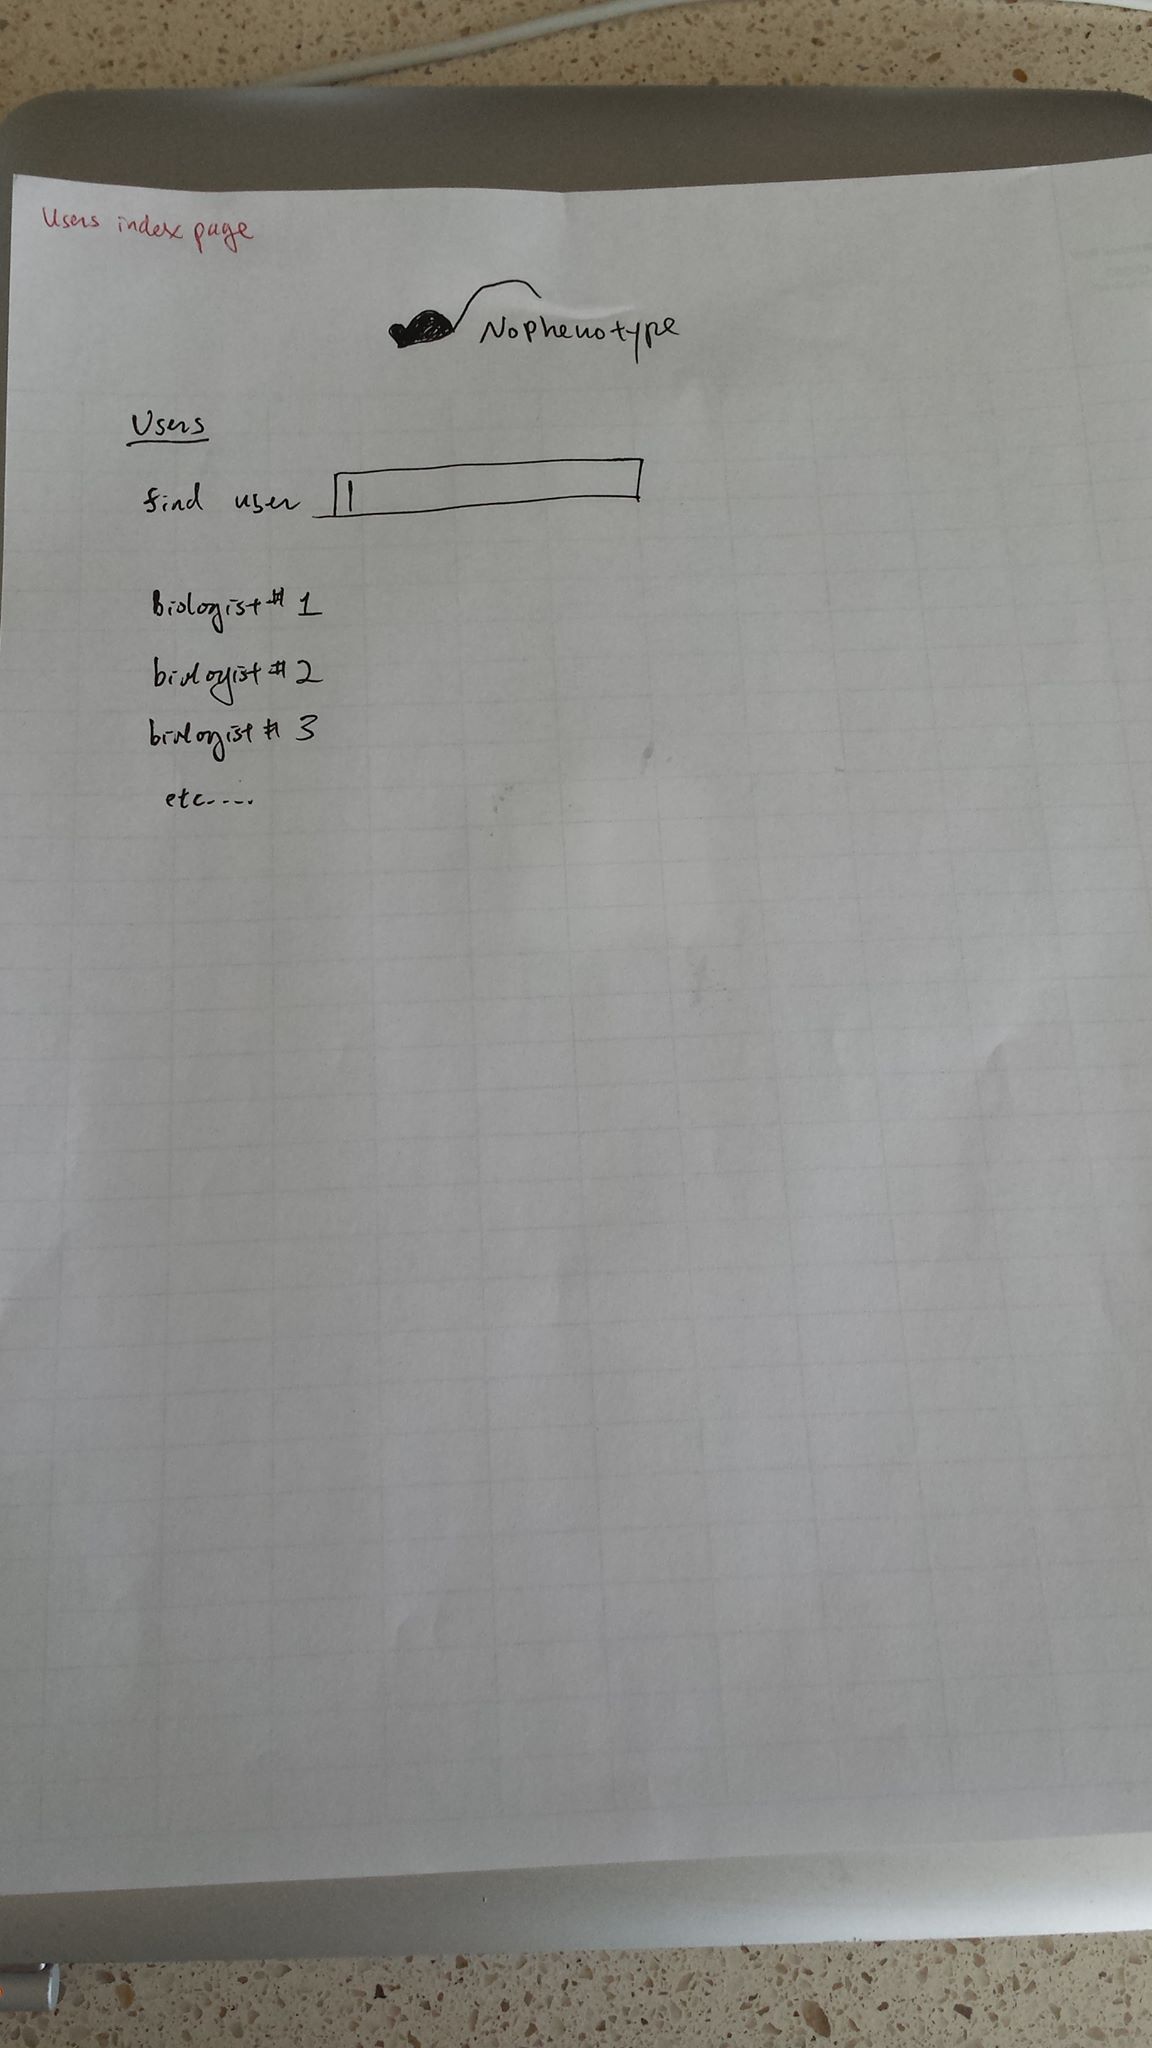 Users index page
Nophenotype
Users
find user
biologist # 1
biologist # 2
biologist # 3
etc.....